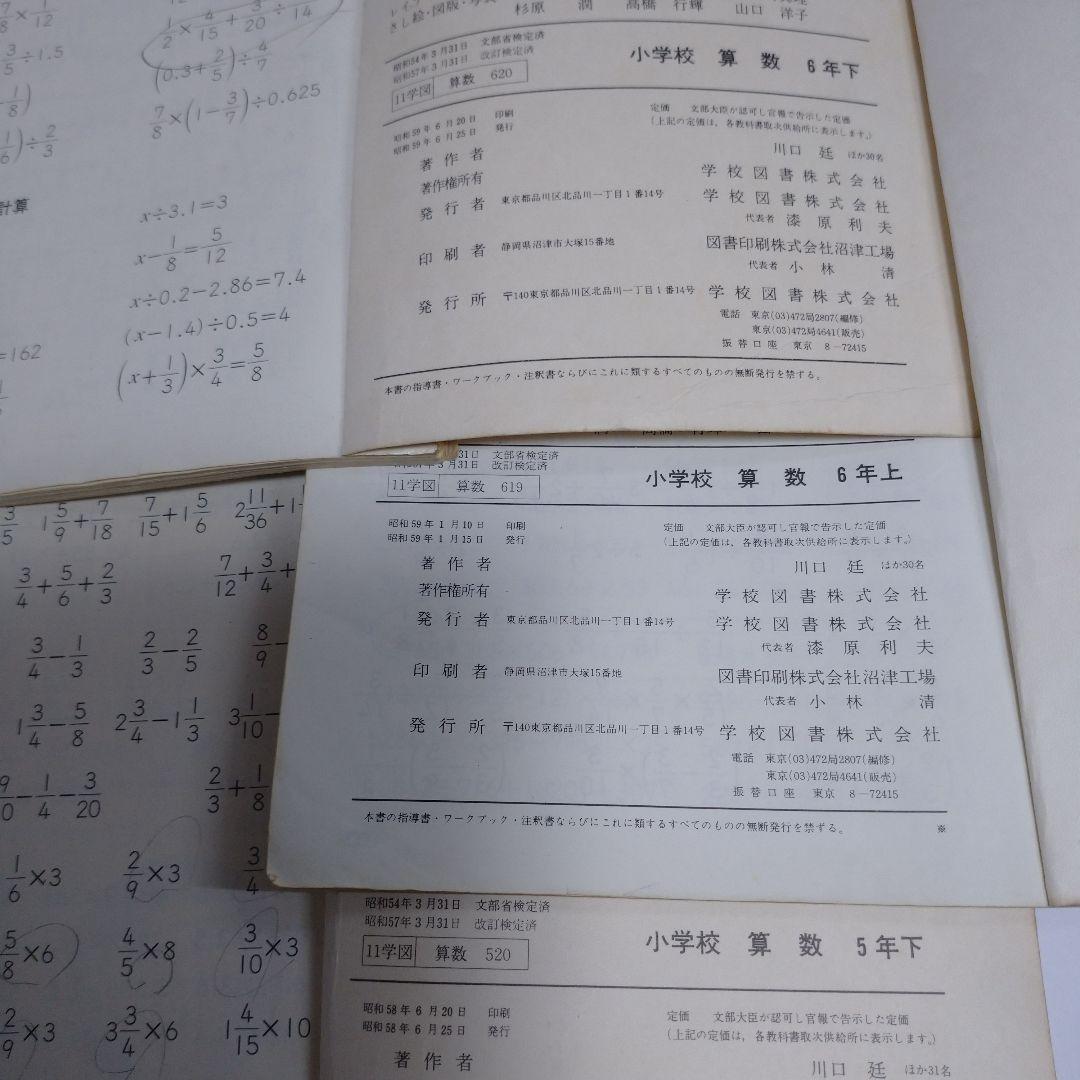 7/8 × 1/12
1/2 × 4/15 + 3/20 ÷ /14
3/5 ÷ 1.5
(0.3 + 2/5) ÷ 4/7
1/8)
7/8 × (1 − 3/7) ÷ 0.625
1/6) ÷ 2/3
計算
x ÷ 3.1 = 3
x − 1/8 = 5/12
x ÷ 0.2 − 2.86 = 7.4
(x − 1.4) ÷ 0.5 = 4
= 162
(x + 1/3) × 3/4 = 5/8
さし絵・図版・写真 杉原 潤 高橋 行輝 山口 洋子
昭和54年3月31日 文部省検定済
昭和57年3月31日 改訂検定済
11学図 算数 620
小学校 算数 6年下
昭和59年6月20日 印刷
昭和59年6月25日 発行
定価 文部大臣が認可し官報で告示した定価
(上記の定価は、各教科書取次供給所に表示します。)
著作者 川口 廷 ほか30名
著作権所有 学校図書株式会社
発行者 東京都品川区北品川一丁目1番14号 学校図書株式会社
代表者 漆原利夫
印刷者 静岡県沼津市大塚15番地 図書印刷株式会社沼津工場
代表者 小林 清
発行所 〒140東京都品川区北品川一丁目1番14号 学校図書株式会社
電話 東京(03)472局2807(編修)
東京(03)472局4641(販売)
振替口座 東京 8-72415
本書の指導書・ワークブック・注釈書ならびにこれに類するすべてのものの無断発行を禁ずる。
月31日 文部省検定済
3月31日 改訂検定済
11学図 算数 619
小学校 算数 6年上
昭和59年1月10日 印刷
昭和59年1月15日 発行
定価 文部大臣が認可し官報で告示した定価
(上記の定価は、各教科書取次供給所に表示します。)
著作者 川口 廷 ほか30名
著作権所有 学校図書株式会社
発行者 東京都品川区北品川一丁目1番14号 学校図書株式会社
代表者 漆原利夫
印刷者 静岡県沼津市大塚15番地 図書印刷株式会社沼津工場
代表者 小林 清
発行所 〒140東京都品川区北品川一丁目1番14号 学校図書株式会社
電話 東京(03)472局2807(編修)
東京(03)472局4641(販売)
振替口座 東京 8-72415
本書の指導書・ワークブック・注釈書ならびにこれに類するすべてのものの無断発行を禁ずる。 ※
3/5 1 5/9 + 7/18 7/15 + 1 5/6 2 11/36 + 1
3/4 + 5/6 + 2/3 7/12 + 3/4 +
3/4 − 1/3 2/3 − 2/5 8/9 −
1 3/4 − 5/8 2 3/4 − 1 1/3 3 1/10 −
− 1/4 − 3/20 2/3 + 1/8
1/6 × 3 2/9 × 3 3/4
5/8 × 6 4/5 × 8 3/10 × 3
2/9 × 3 3 3/4 × 6 1 4/15 × 10
昭和54年3月31日 文部省検定済
昭和57年3月31日 改訂検定済
11学図 算数 520
小学校 算数 5年下
昭和58年6月20日 印刷
昭和58年6月25日 発行
定価 文部大臣が認可し官報で告示した定価
(上記の定価は、各教科書取次供給所に表示します。)
著作者 川口 廷 ほか31名